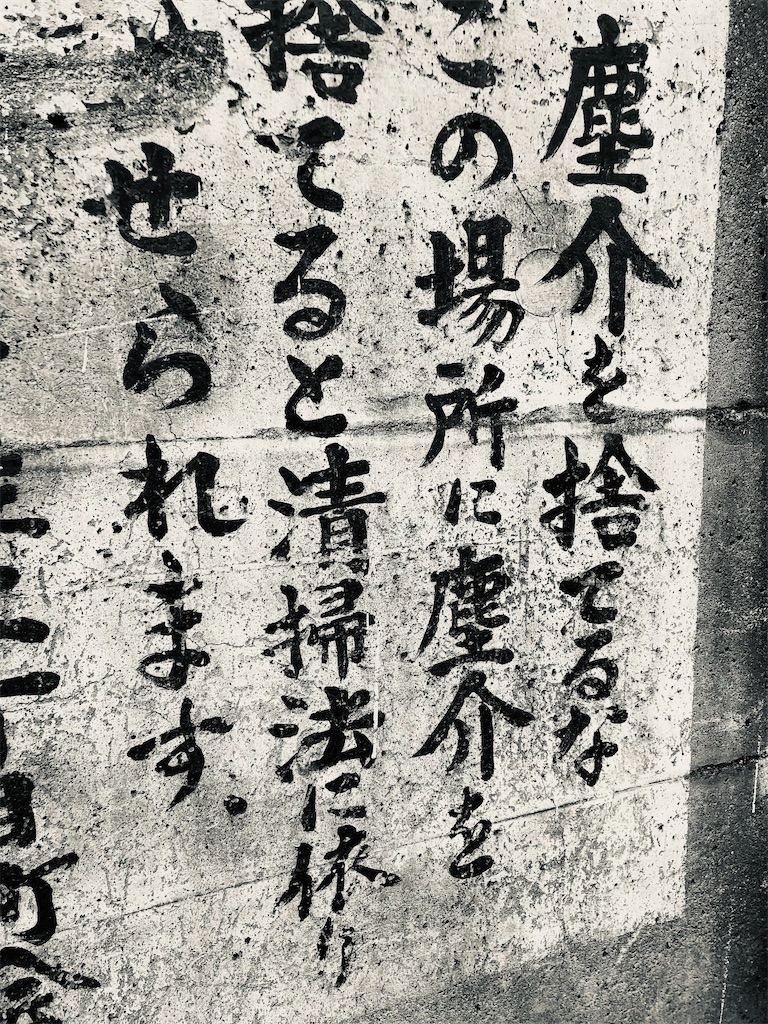 塵介を捨てるな
この場所に塵介を
捨てると清掃法に依り
せられます。
二丁目町会